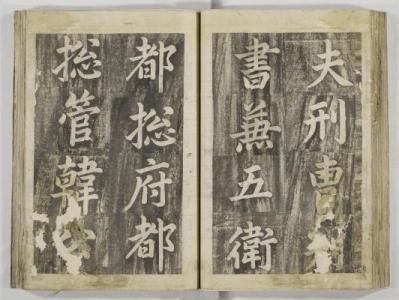 夫刑曹
書兼五衛
都摠府都
摠管韓公